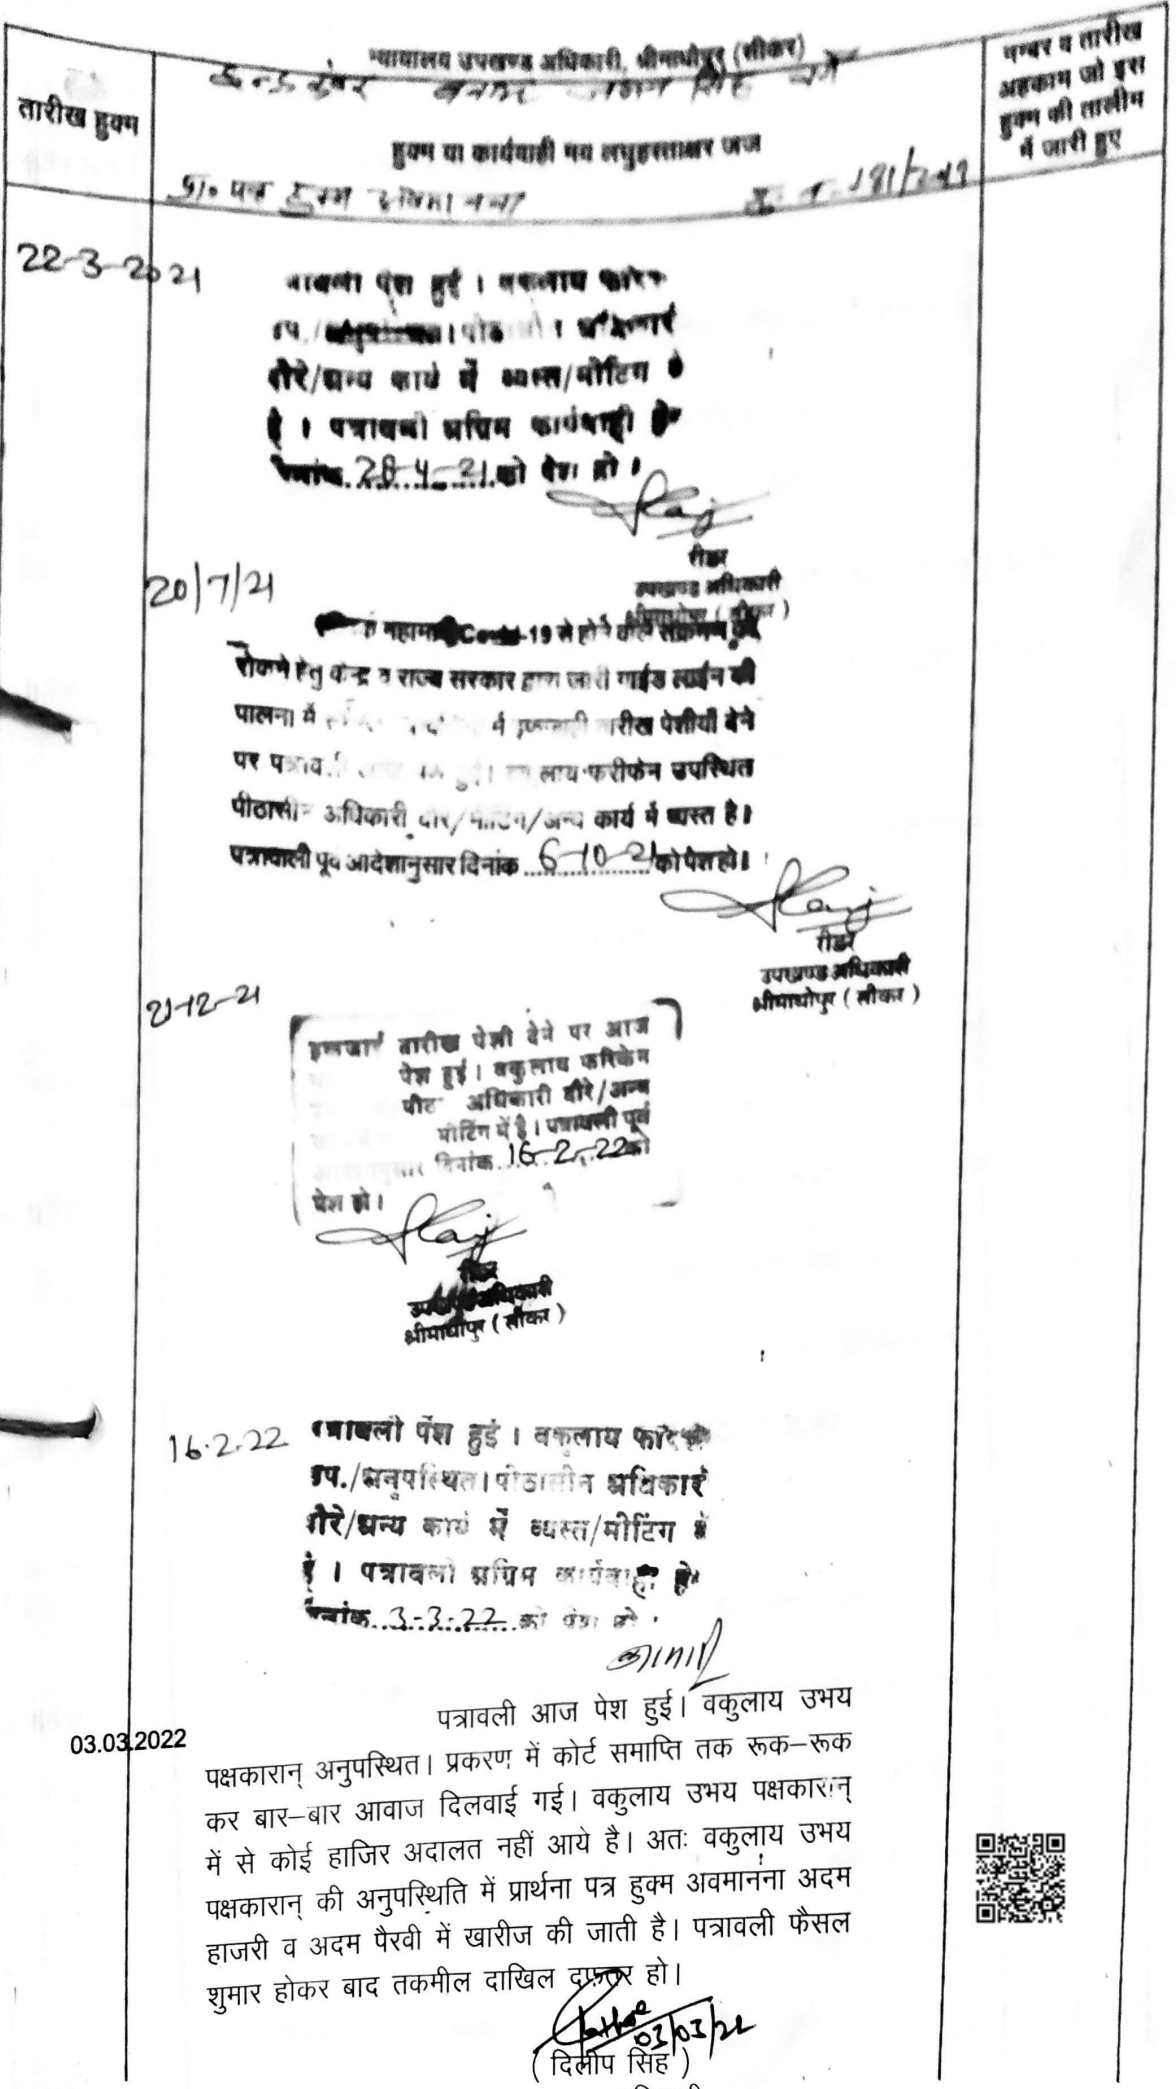 न्यायालय उपखण्ड अधिकारी, श्रीमाधोपुर (सीकर)
बनाम सिंह
तारीख हुक्म
हुक्म या कार्यवाही मय लघुहस्ताक्षर जज
नम्बर व तारीख
अहकाम जो इस
हुक्म की तालीम
में जारी हुए
प्रा० पत्र हुक्म
22-3-2021
पेश हुई । वकुलाय
दौरे/अन्य कार्य में व्यस्त/मीटिंग
है । पत्रावली अग्रिम कार्यवाही
28-4-21 को पेश हो ।
रीडर
उपखण्ड अधिकारी
श्रीमाधोपुर ( सीकर )
20/7/21
Covid-19 से होने वाले संक्रमण को
रोकने हेतु केन्द्र व राज्य सरकार द्वारा जारी गाईड लाईन की
पालना में तारीख पेशीयाँ देने
पर फरीकेन उपस्थित
पीठासीन अधिकारी दौरे/मीटिंग/अन्य कार्य में व्यस्त है।
पत्रावली पूर्व आदेशानुसार दिनांक 6-10-21 को पेश हो।
रीडर
उपखण्ड अधिकारी
श्रीमाधोपुर ( सीकर )
21-12-21
तारीख पेशी देने पर आज
पेश हुई। वकुलाय फरिकेन
अधिकारी दौरे/अन्य
मीटिंग में है। पत्रावली पूर्व
दिनांक 16-2-22 को
पेश हो।
रीडर
उपखण्ड अधिकारी
श्रीमाधोपुर ( सीकर )
16.2.22
पत्रावली पेश हुई । वकुलाय
उप./अनुपस्थित। पीठासीन अधिकारी
दौरे/अन्य कार्य में व्यस्त/मीटिंग
है । पत्रावली अग्रिम कार्यवाही
3-3-22 को पेश हो
03.03.2022
पत्रावली आज पेश हुई। वकुलाय उभय
पक्षकारान् अनुपस्थित। प्रकरण में कोर्ट समाप्ति तक रूक–रूक
कर बार–बार आवाज दिलवाई गई। वकुलाय उभय पक्षकारान्
में से कोई हाजिर अदालत नहीं आये है। अतः वकुलाय उभय
पक्षकारान् की अनुपस्थिति में प्रार्थना पत्र हुक्म अवमानना अदम
हाजरी व अदम पैरवी में खारीज की जाती है। पत्रावली फैसल
शुमार होकर बाद तकमील दाखिल दफ्तर हो।
03/03/22
( दिलीप सिंह )